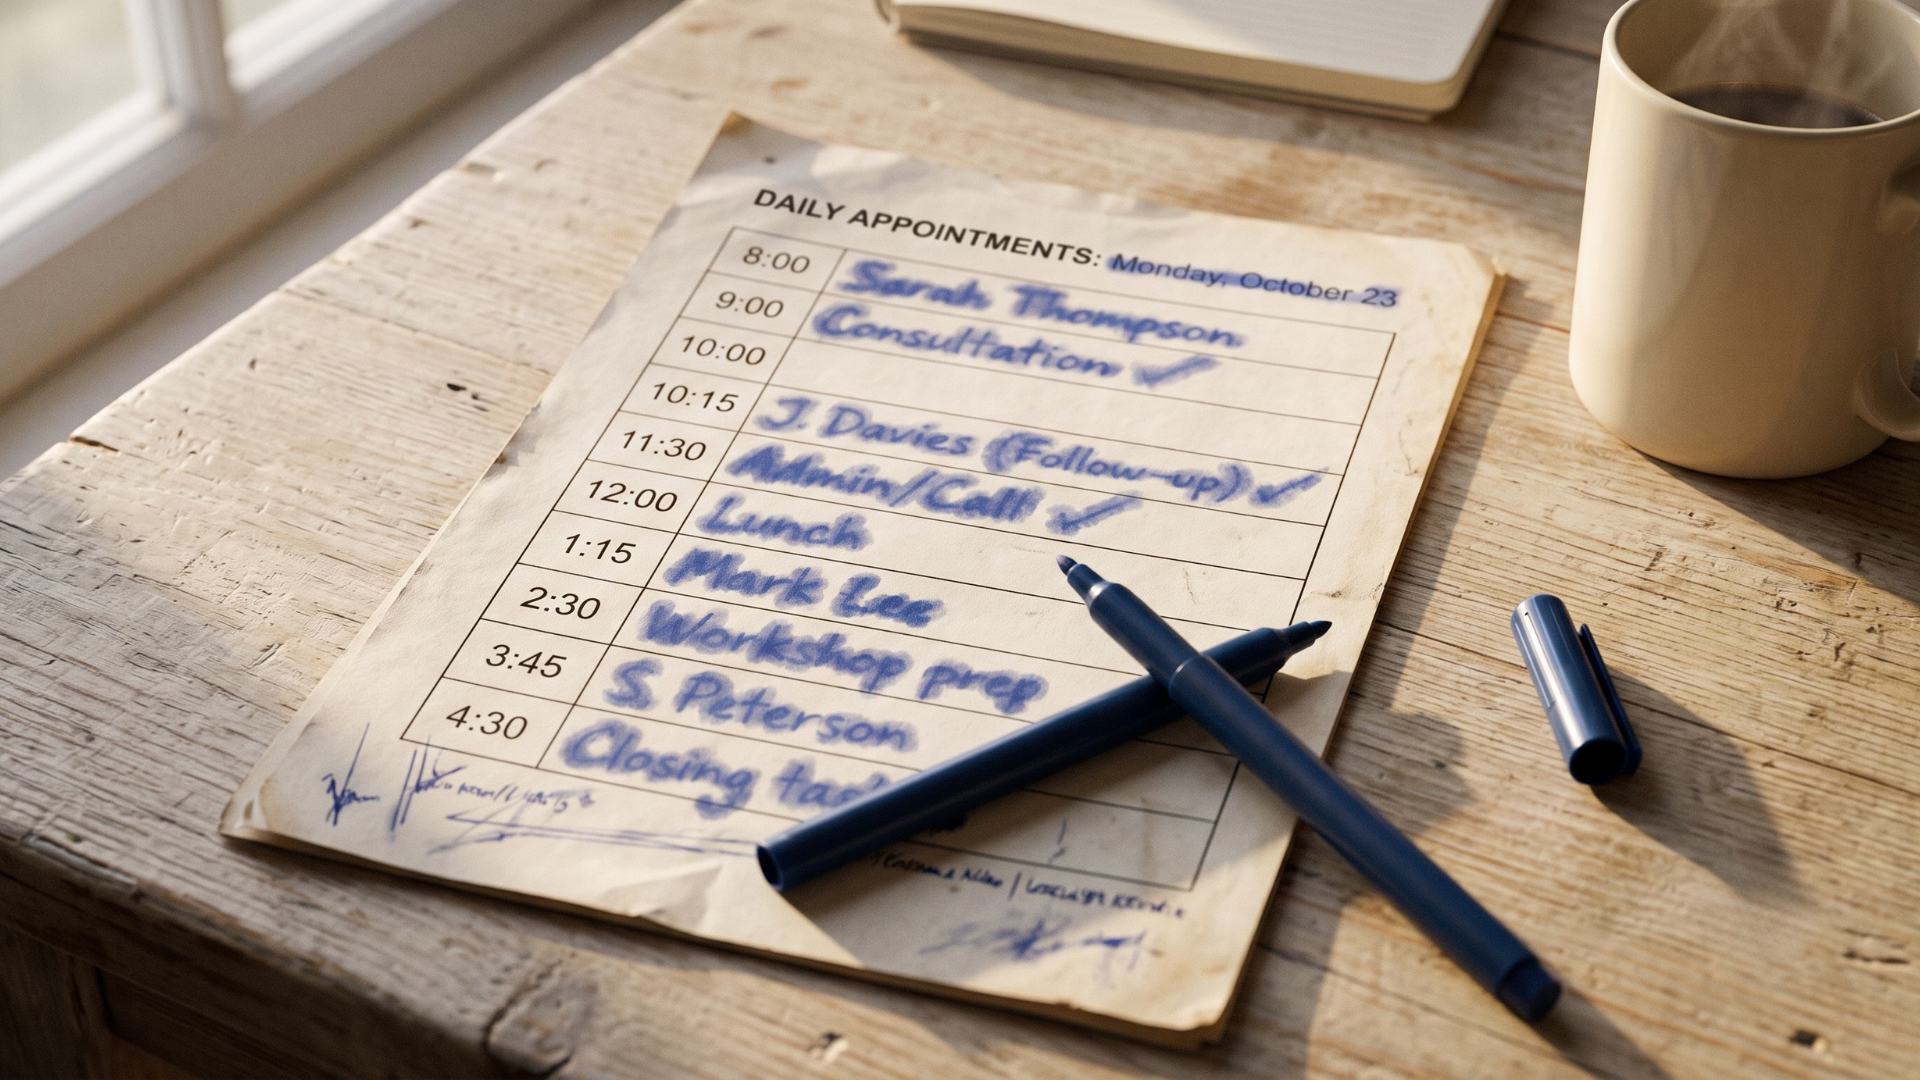 DAILY APPOINTMENTS: Monday, October 23
8:00 Sarah Thompson
9:00 Consultation ✓
10:00
10:15 J. Davies (Follow-up) ✓
11:30 Admin/Call ✓
12:00 Lunch
1:15 Mark Lee
2:30 Workshop prep
3:45 S. Peterson
4:30 Closing